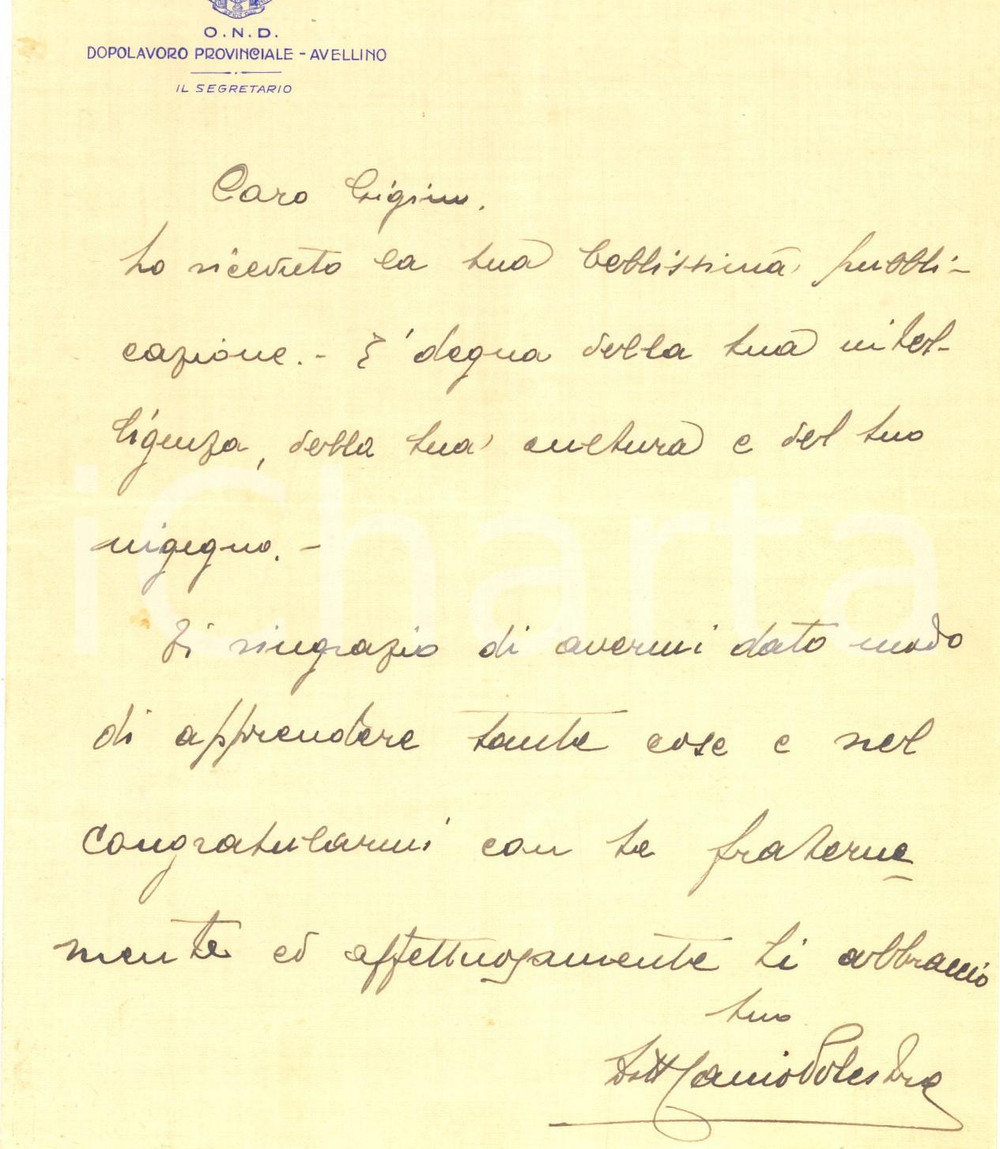 O.N.D.
DOPOLAVORO PROVINCIALE - AVELLINO
IL SEGRETARIO
Caro Gigino.
ho ricevuto la tua bellissima pubbli-
cazione.- E' degna della tua intel-
ligenza, della tua cultura e del tuo
ingegno.-
Ti ringrazio di avermi dato modo
di apprendere tante cose e nel
congratularmi con te fraterna
mente ed affettuosamente ti abbraccio
tuo
Dott
iCharta